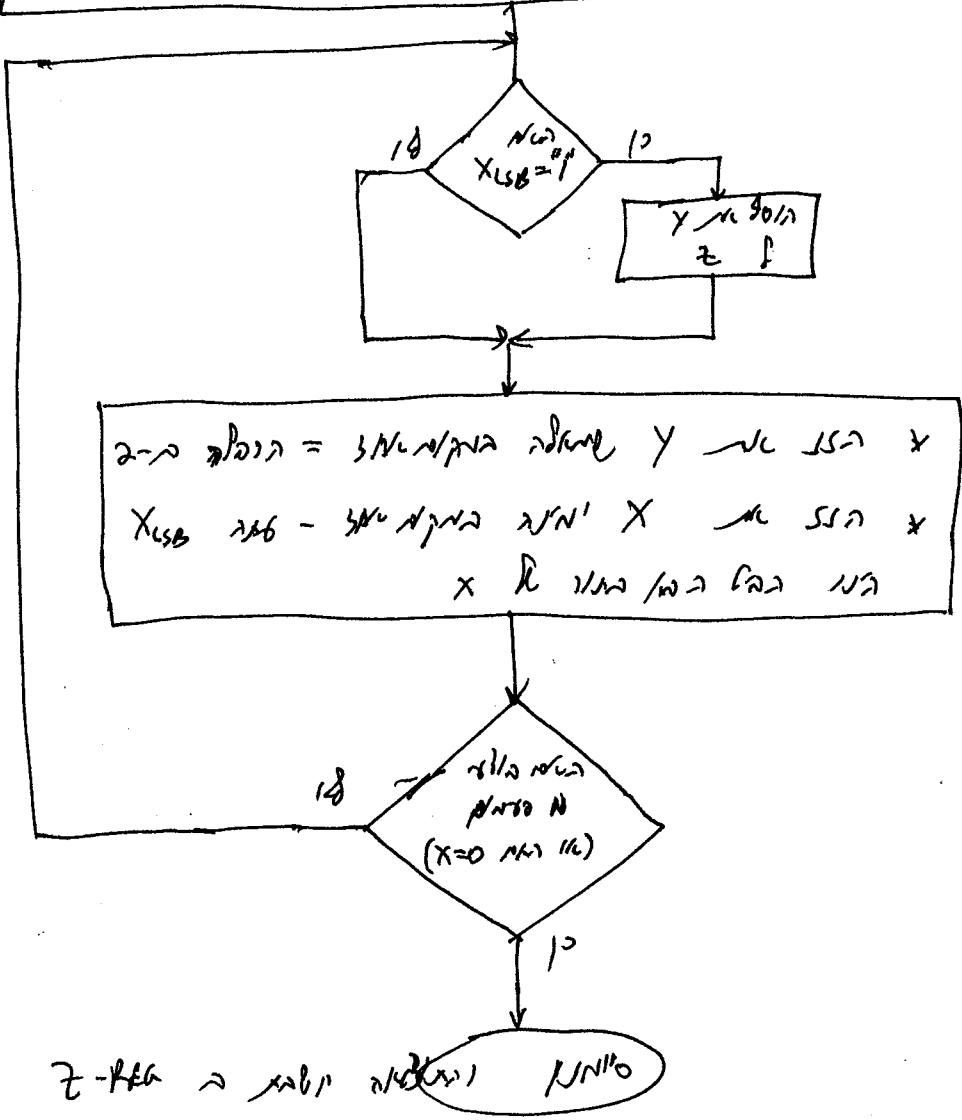 האם
X_LSB="1"
לא
כן
הוסף את Y
ל Z
* הזז את Y שמאלה במקום אחד = הכפלה ב-2
* הזז את X ימינה במקום אחד - עתה X_LSB
הינו הביט הבא בתור של X
האם בוצע
n פעמים
(או האם X=0)
לא
כן
סיימנו והתוצאה יושבת ב Z-REG